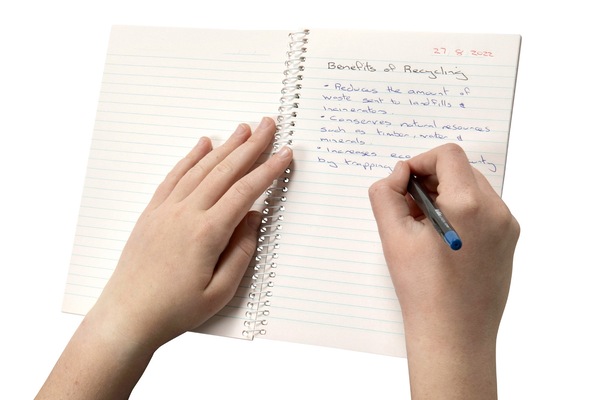 27. 8. 2022
Benefits of Recycling
• Reduces the amount of
waste sent to landfills &
incinerators.
• Conserves natural resources
such as timber, water &
minerals.
• Increases
by trapping